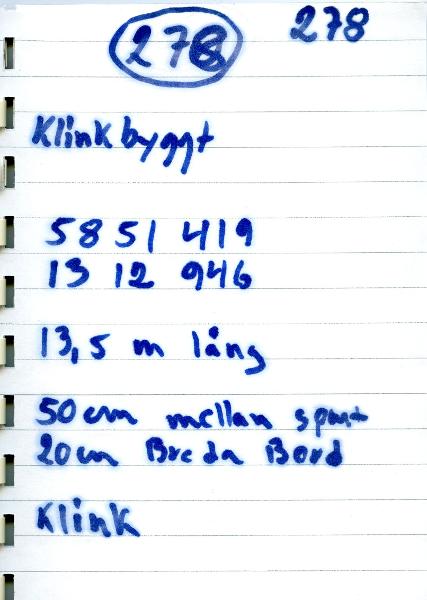 278 278
Klinkbyggt
58 51 419
13 12 946
13,5 m lång
50 cm mellan spant
20 cm Breda Bord
Klink